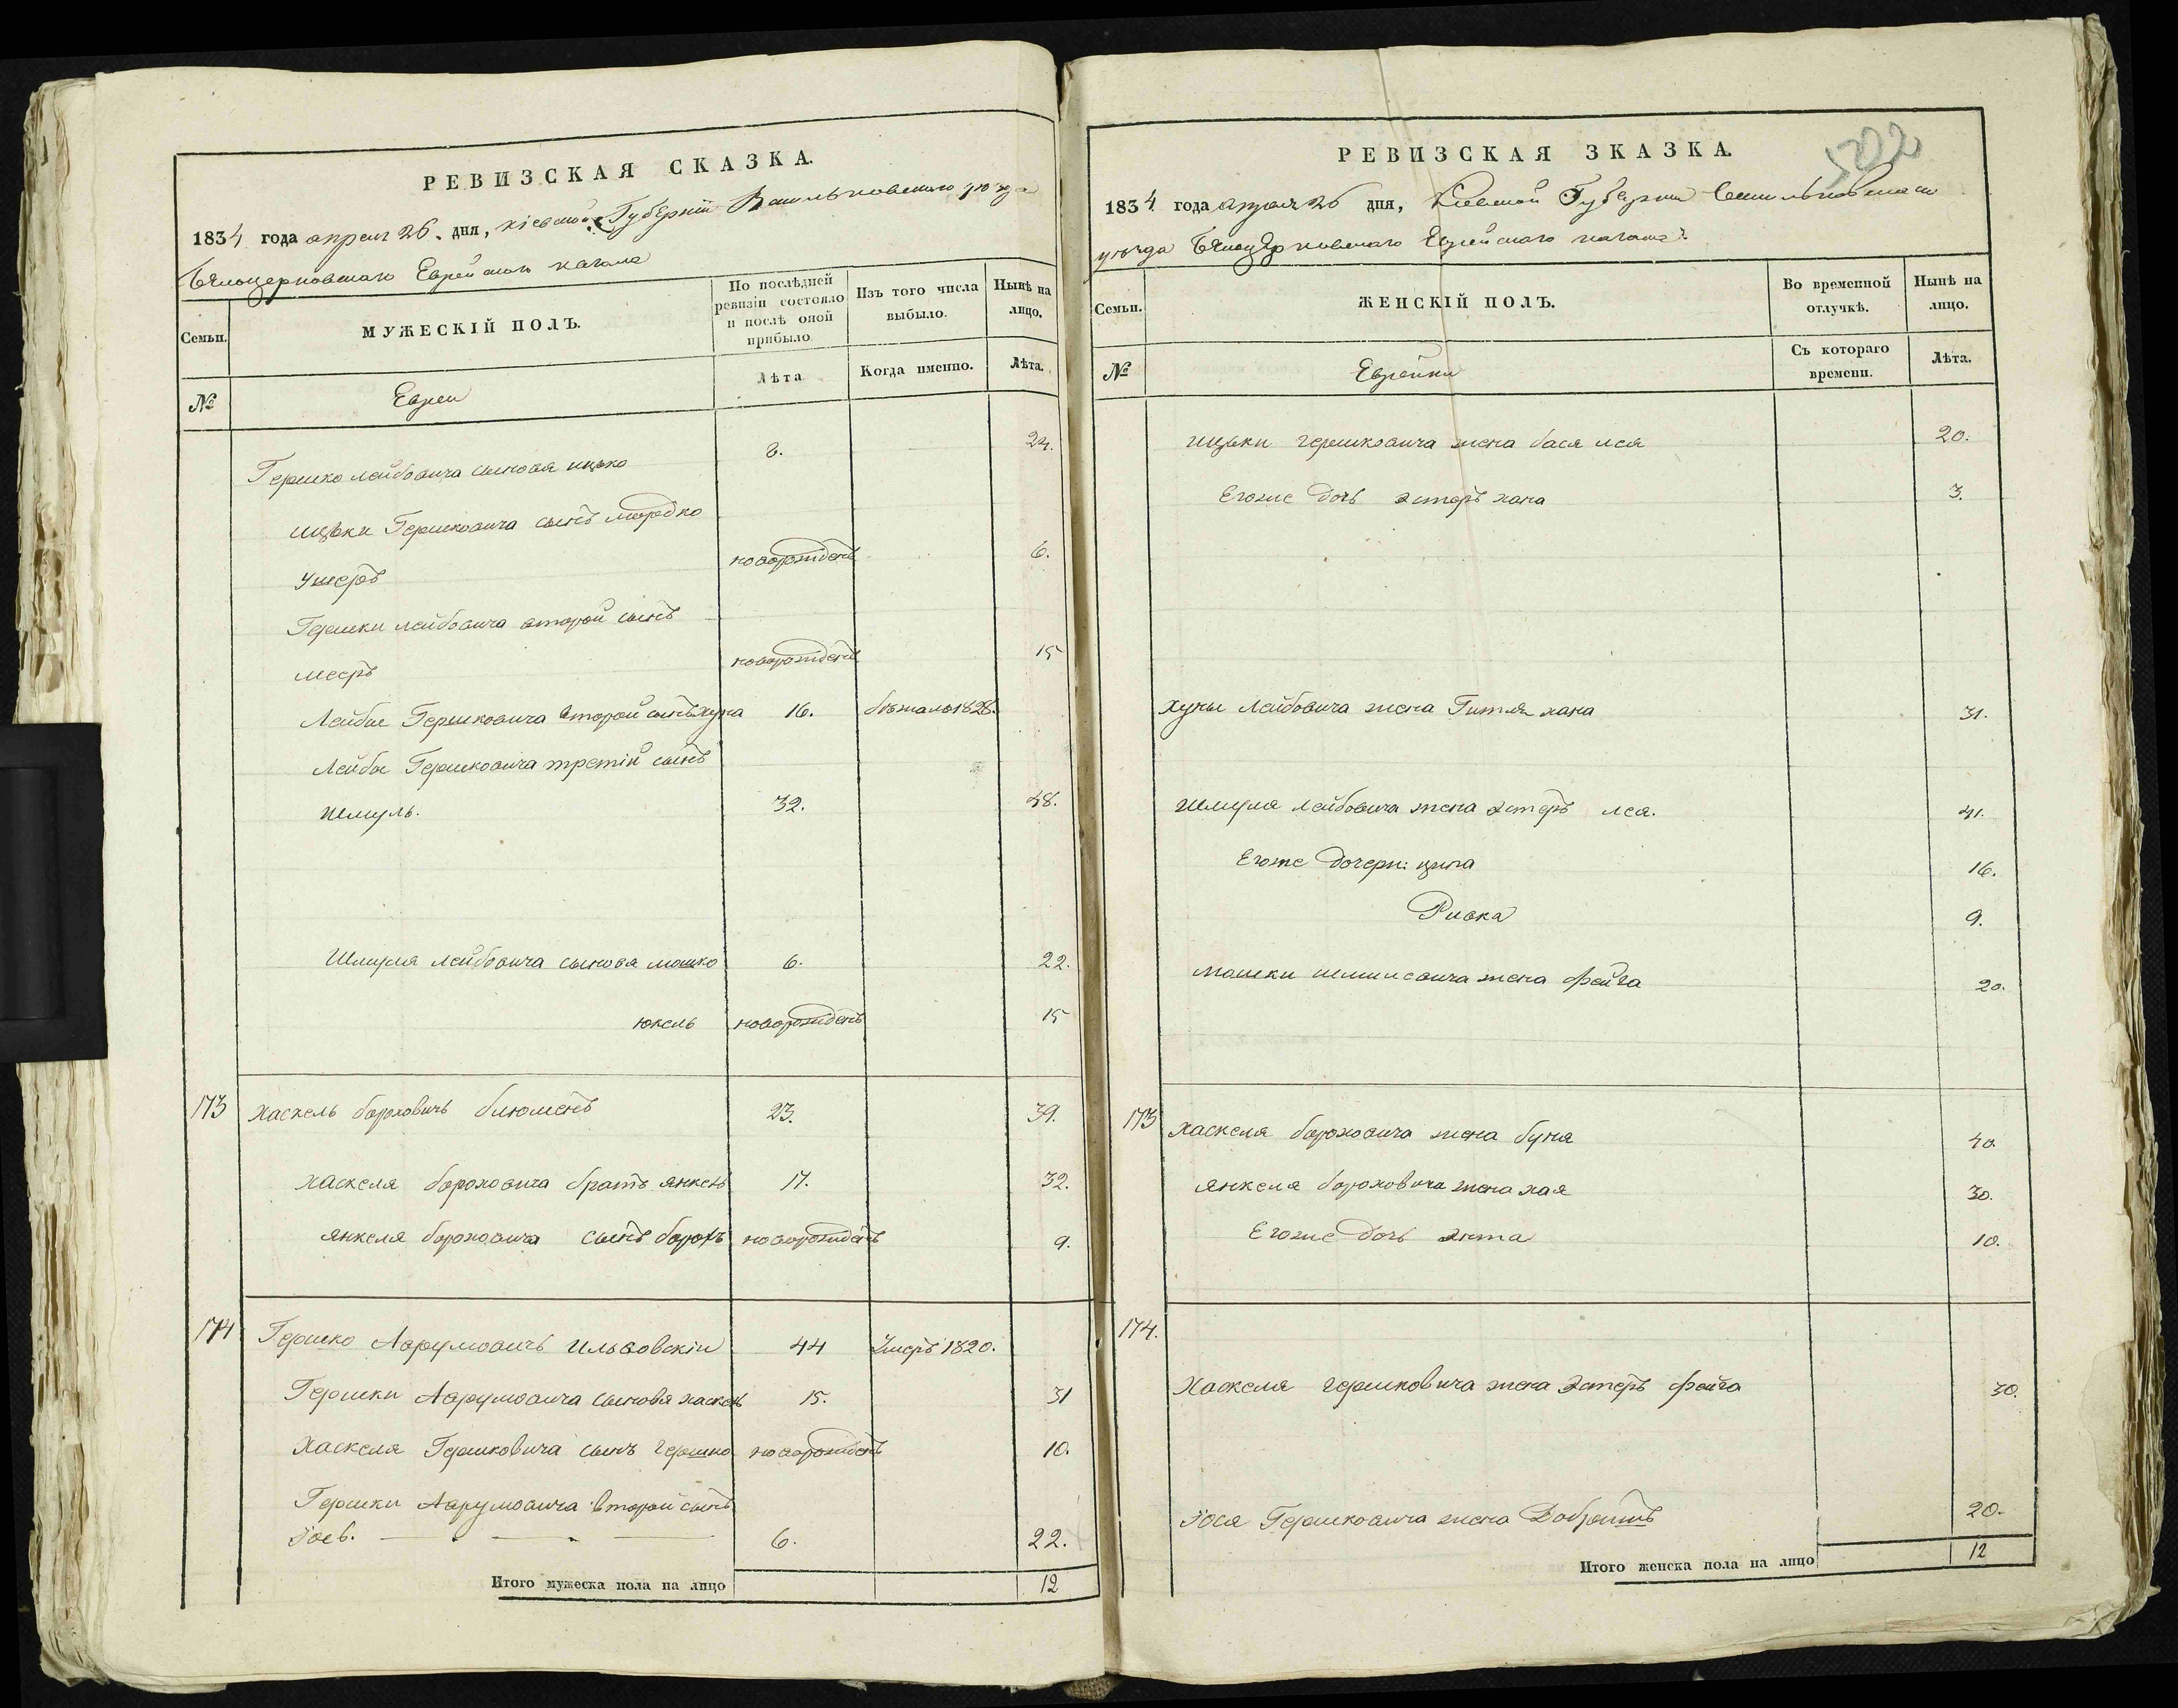 РЕВИЗСКАЯ СКАЗКА.
1834 года апреля 26. дня, Кіевской Губерніи Васильковского уѣзда
Бѣлоцерковскаго Еврейскаго кагала
Семьи.
МУЖЕСКІЙ ПОЛЪ.
По послѣдней ревизіи состояло и послѣ оной прибыло
Изъ того числа выбыло.
Нынѣ на лицо.
№
Евреи
Лѣта
Когда именно.
Лѣта.
Гершко Лейбовича сыновя ицько 8. 24.
ицьки Гершковича сынъ мордко
Ушеръ новорожденъ 6.
Гершки лейбовича второй сынъ
мееръ новорожденъ 15
Лейбы Гершковича второй сынъ хуна 16. бѣжалъ 1828.
Лейбы Гершковича третій сынъ
шмуль. 32. 48.
Шмуля лейбовича сыновя мошко 6. 22.
юкель новорожденъ 15
173 хаскель борховичъ блюменъ 23. 39.
хаскеля бороховича братъ янкель 17. 32.
янкеля бороховича сынъ борохъ новорожденъ 9.
174 Гершко Аврумовичъ Ильвовскіи 44 Умеръ 1820.
Гершки Аврумовича сыновя хаскель 15. 31
Хаскеля Гершковича сынъ гершко новорожденъ 10.
Гершки Аврумовича второй сынъ
Іось. 6. 22.
Итого мужеска пола на лицо 12
РЕВИЗСКАЯ ЗКАЗКА.
502
1834 года апреля 26 дня, Кіевской Губерніи Васильковскаго
уѣзда Бѣлоцерковскаго Еврейскаго кагала
Семьи.
ЖЕНСКІЙ ПОЛЪ.
Во временной отлучкѣ.
Нынѣ на лицо.
№
Еврейки
Съ котораго времени.
Лѣта.
ицьки гершковича жена бася лея 20.
Егоже дочь эстеръ хана 3.
хуны Лейбовича жена Гитля хана 31.
шмуля лейбовича жена эстеръ лея. 41.
Егоже дочери: ципа 16.
Ривка 9.
мошки шмулевича жена Фейга 20.
173 хаскеля бороховича жена буня 40.
янкеля бороховича жена хая 30.
Егоже дочь энта 10.
174.
Хаскеля гершковича жена Эстеръ фейга 30.
Іося Гершковича жена Добрышъ 20.
Итого женска пола на лицо 12